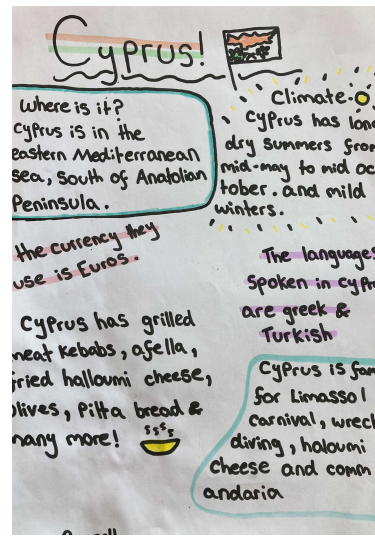 Cyprus!
Where is it?
Cyprus is in the
eastern Mediterranean
sea, South of Anatolian
Peninsula.
Climate.
Cyprus has long
dry summers from
mid-may to mid oc
tober. and mild
winters.
the currency they
use is Euros.
The languages
Spoken in
are greek &
Turkish
Cyprus has grilled
meat kebabs, afella,
fried halloumi cheese,
olives, Pitta bread &
many more!
Cyprus is
for Limassol
carnival, wreck
diving, haloumi
cheese and comm
andaria